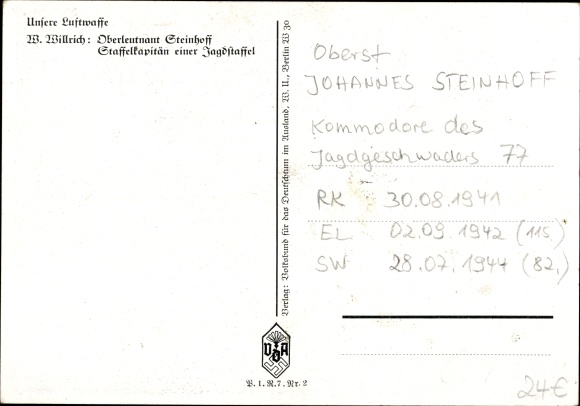 Unsere Luftwaffe
W. Willrich: Oberleutnant Steinhoff
Staffelkapitän einer Jagdstaffel
Verlag: Volksbund für das Deutschtum im Ausland, W. U., Berlin W 30
VDA
V. 1. R. 7. Nr. 2
Oberst
JOHANNES STEINHOFF
Kommodore des
Jagdgeschwaders 77
RK 30.08.1941
EL 02.09.1942 (115.)
SW 28.07.1944 (82.)
24€